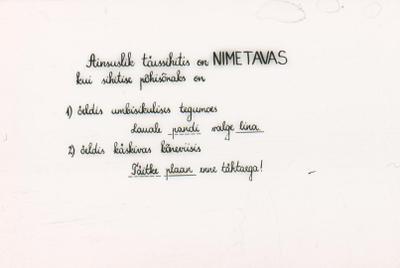 Ainsuslik täissihitis on NIMETAVAS
kui sihitise põhisõnaks on
1) öeldis umbisikulises tegumoes
lauale pandi valge lina.
2) öeldis käskivas kõneviisis
Täitke plaan enne tähtaega!